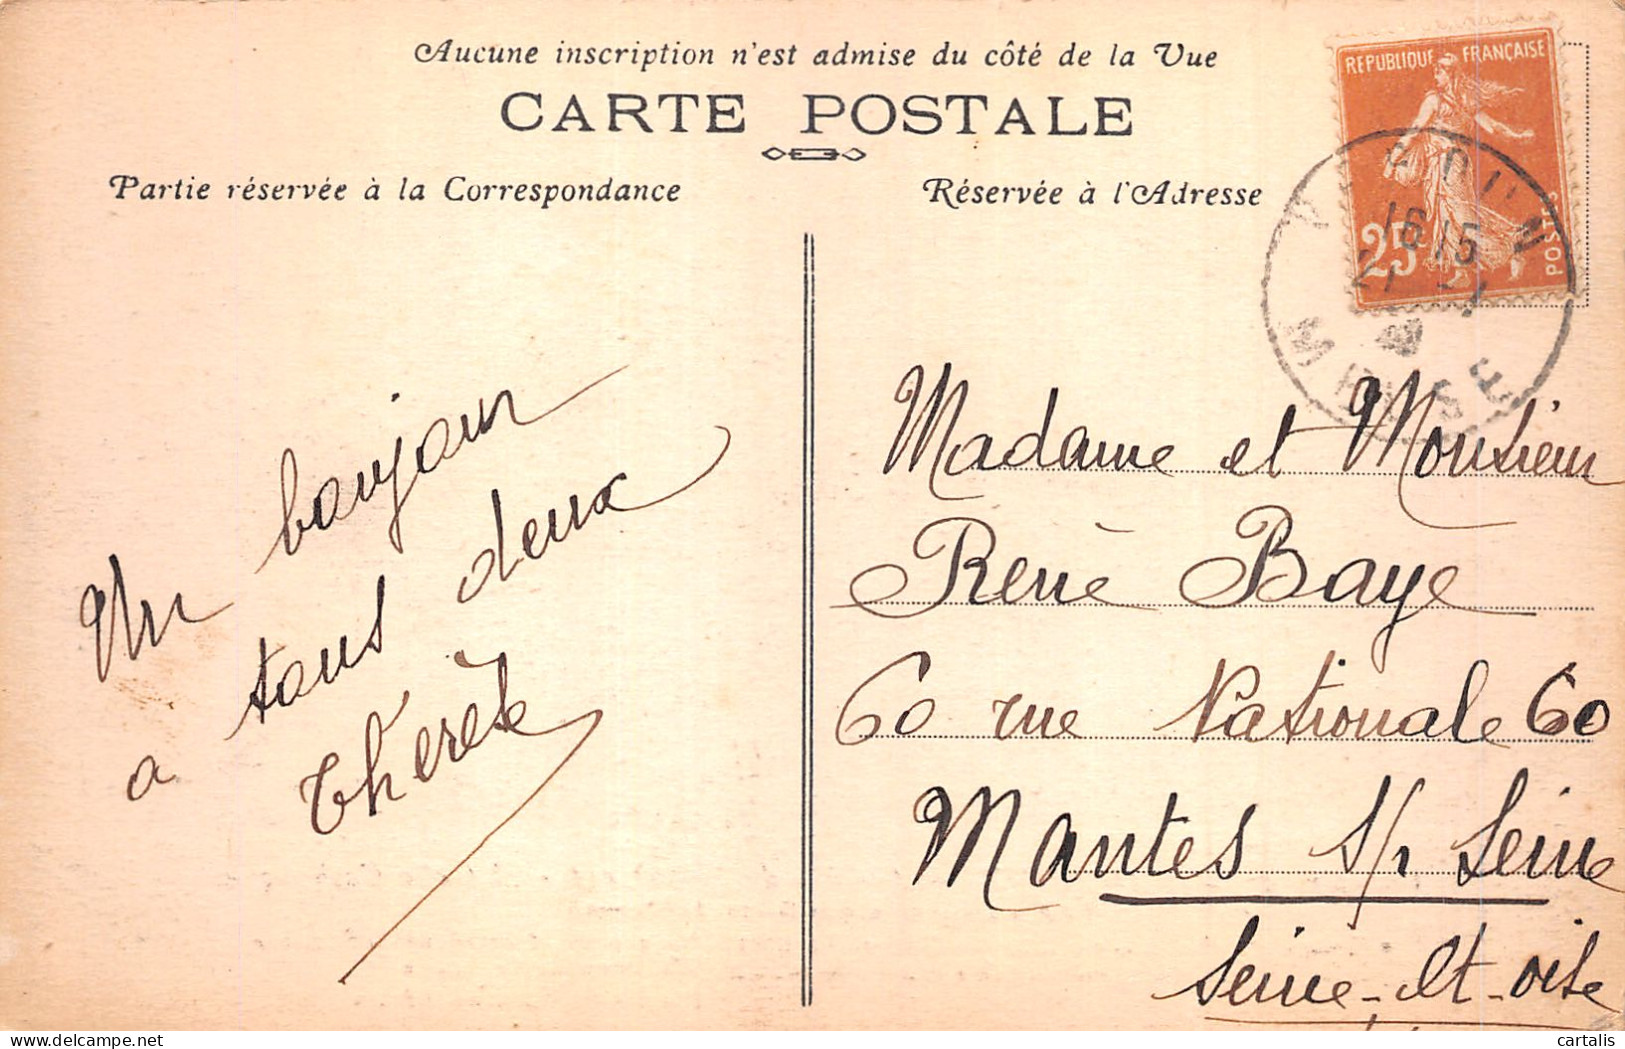 Aucune inscription n'est admise du côté de la Vue
CARTE POSTALE
Partie réservée à la Correspondance
Réservée à l'Adresse
REPUBLIQUE FRANÇAISE
25
POSTES
VERDUN
16 15
MEUSE
Un bonjour
a tous deux
Thérèse
Madame et Monsieur
René Baye
60 rue Nationale 60
Mantes s/r Seine
Seine-et-oise
delcampe.net
cartalis